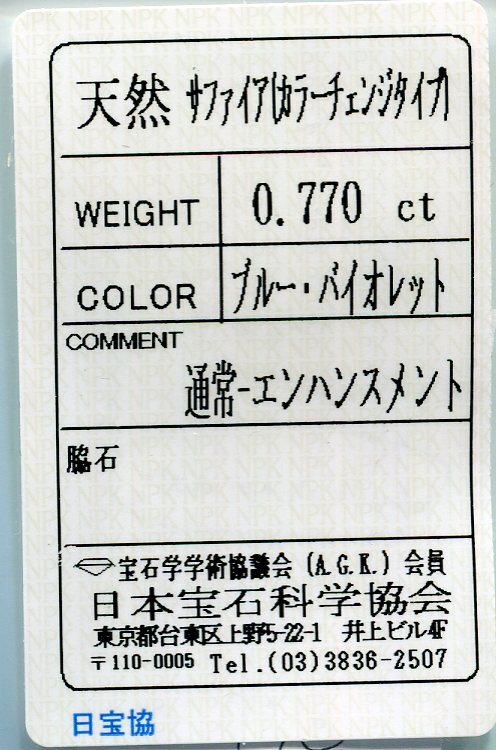 天然 サファイア(カラーチェンジタイプ)
WEIGHT 0.770 ct
COLOR ブルー・バイオレット
COMMENT
通常-エンハンスメント
脇石
宝石学学術協議会 (A.G.K.) 会員
日本宝石科学協会
東京都台東区上野5-22-1 井上ビル4F
〒110-0005 Tel.(03)3836-2507
日宝協